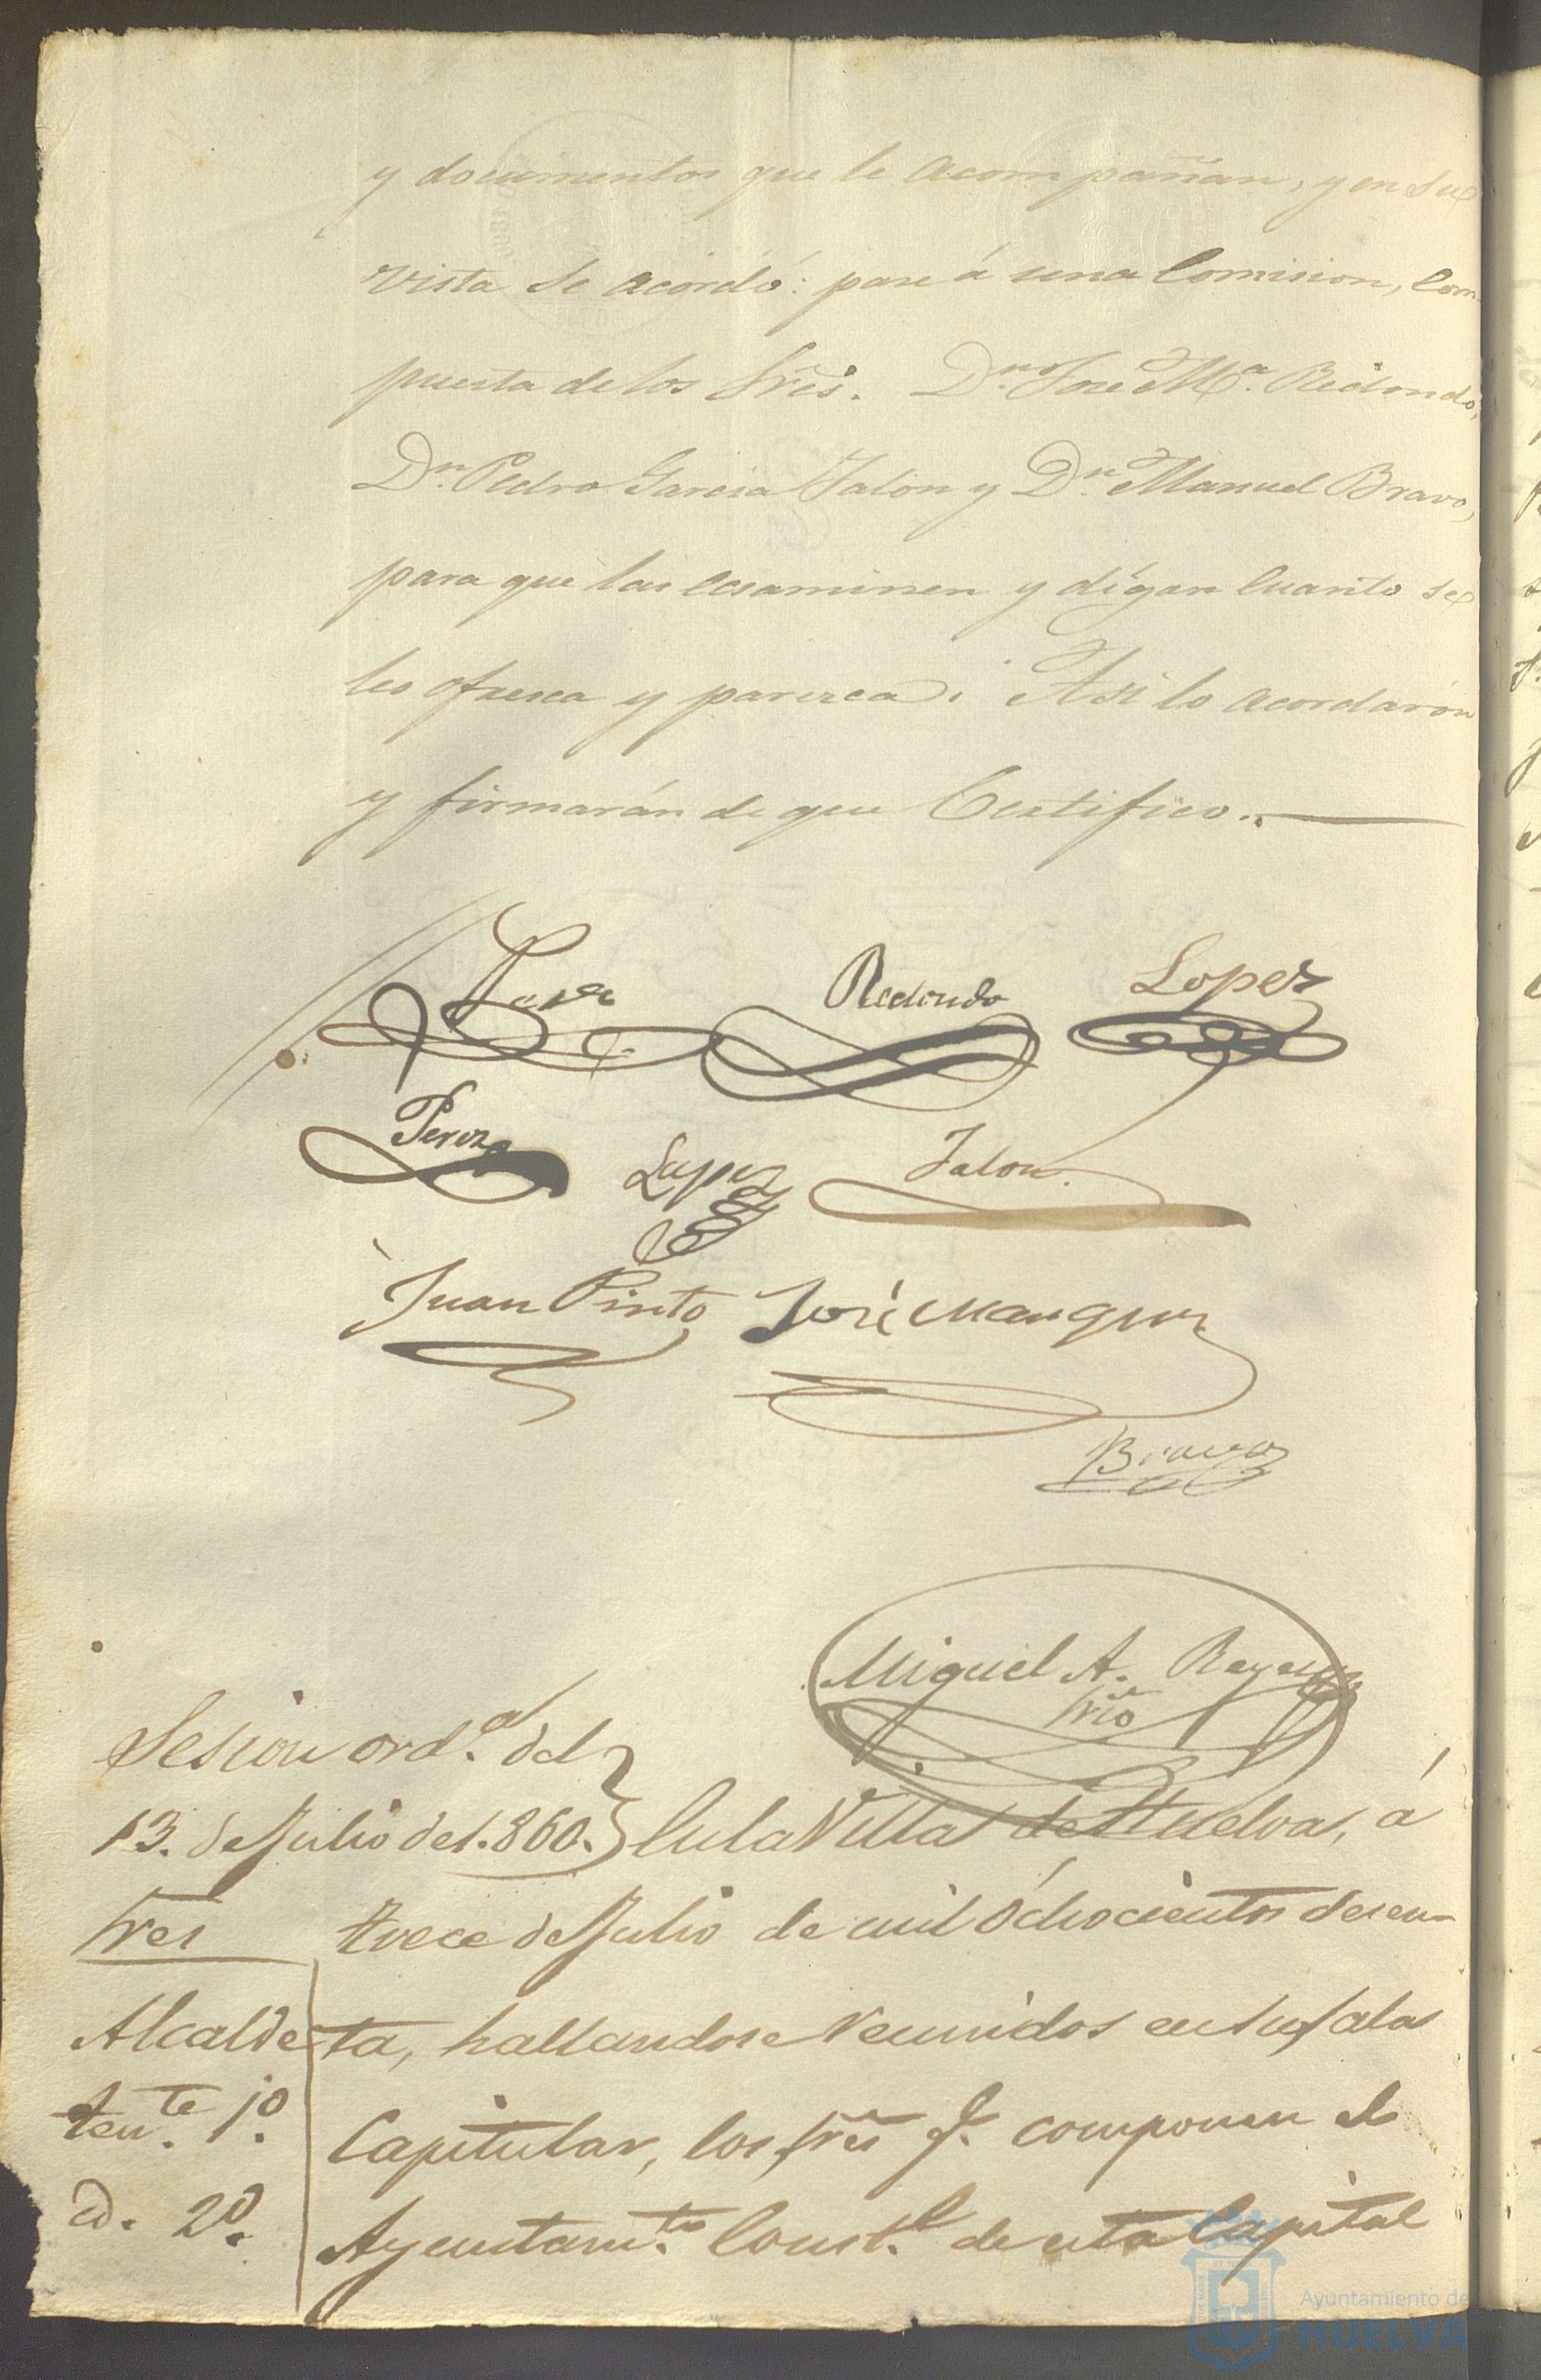 y documentos que le acompañan, y en su
vista se acordó: pase á una Comision, com-
puesta de los Sres. Dn. Jose Ma. Redondo,
Dn. Pedro Garcia Jalon y Dn. Manuel Bravo,
para que las ecsaminen y dígan cuanto se
les ofresca y paresca. Asi lo acordarón
y firmarán de que Certifico.
Redondo Lopez
Perez Lopez Jalon
Juan Pinto José Marquez
Bravo
Miguel A. Reyes
Srio
Sesion orda. del
13. de Julio de 1.860.
En la Villa de Huelva, á
Sres
trece de Julio de mil ochocientos sesen-
Alcalde
ta, hallandose reunidos en su sala
tente. 1o.
Capitular, los Sres q. componen el
id. 2o.
Ayuntamto. Constl. de esta Capital
Ayuntamiento de
HUELVA